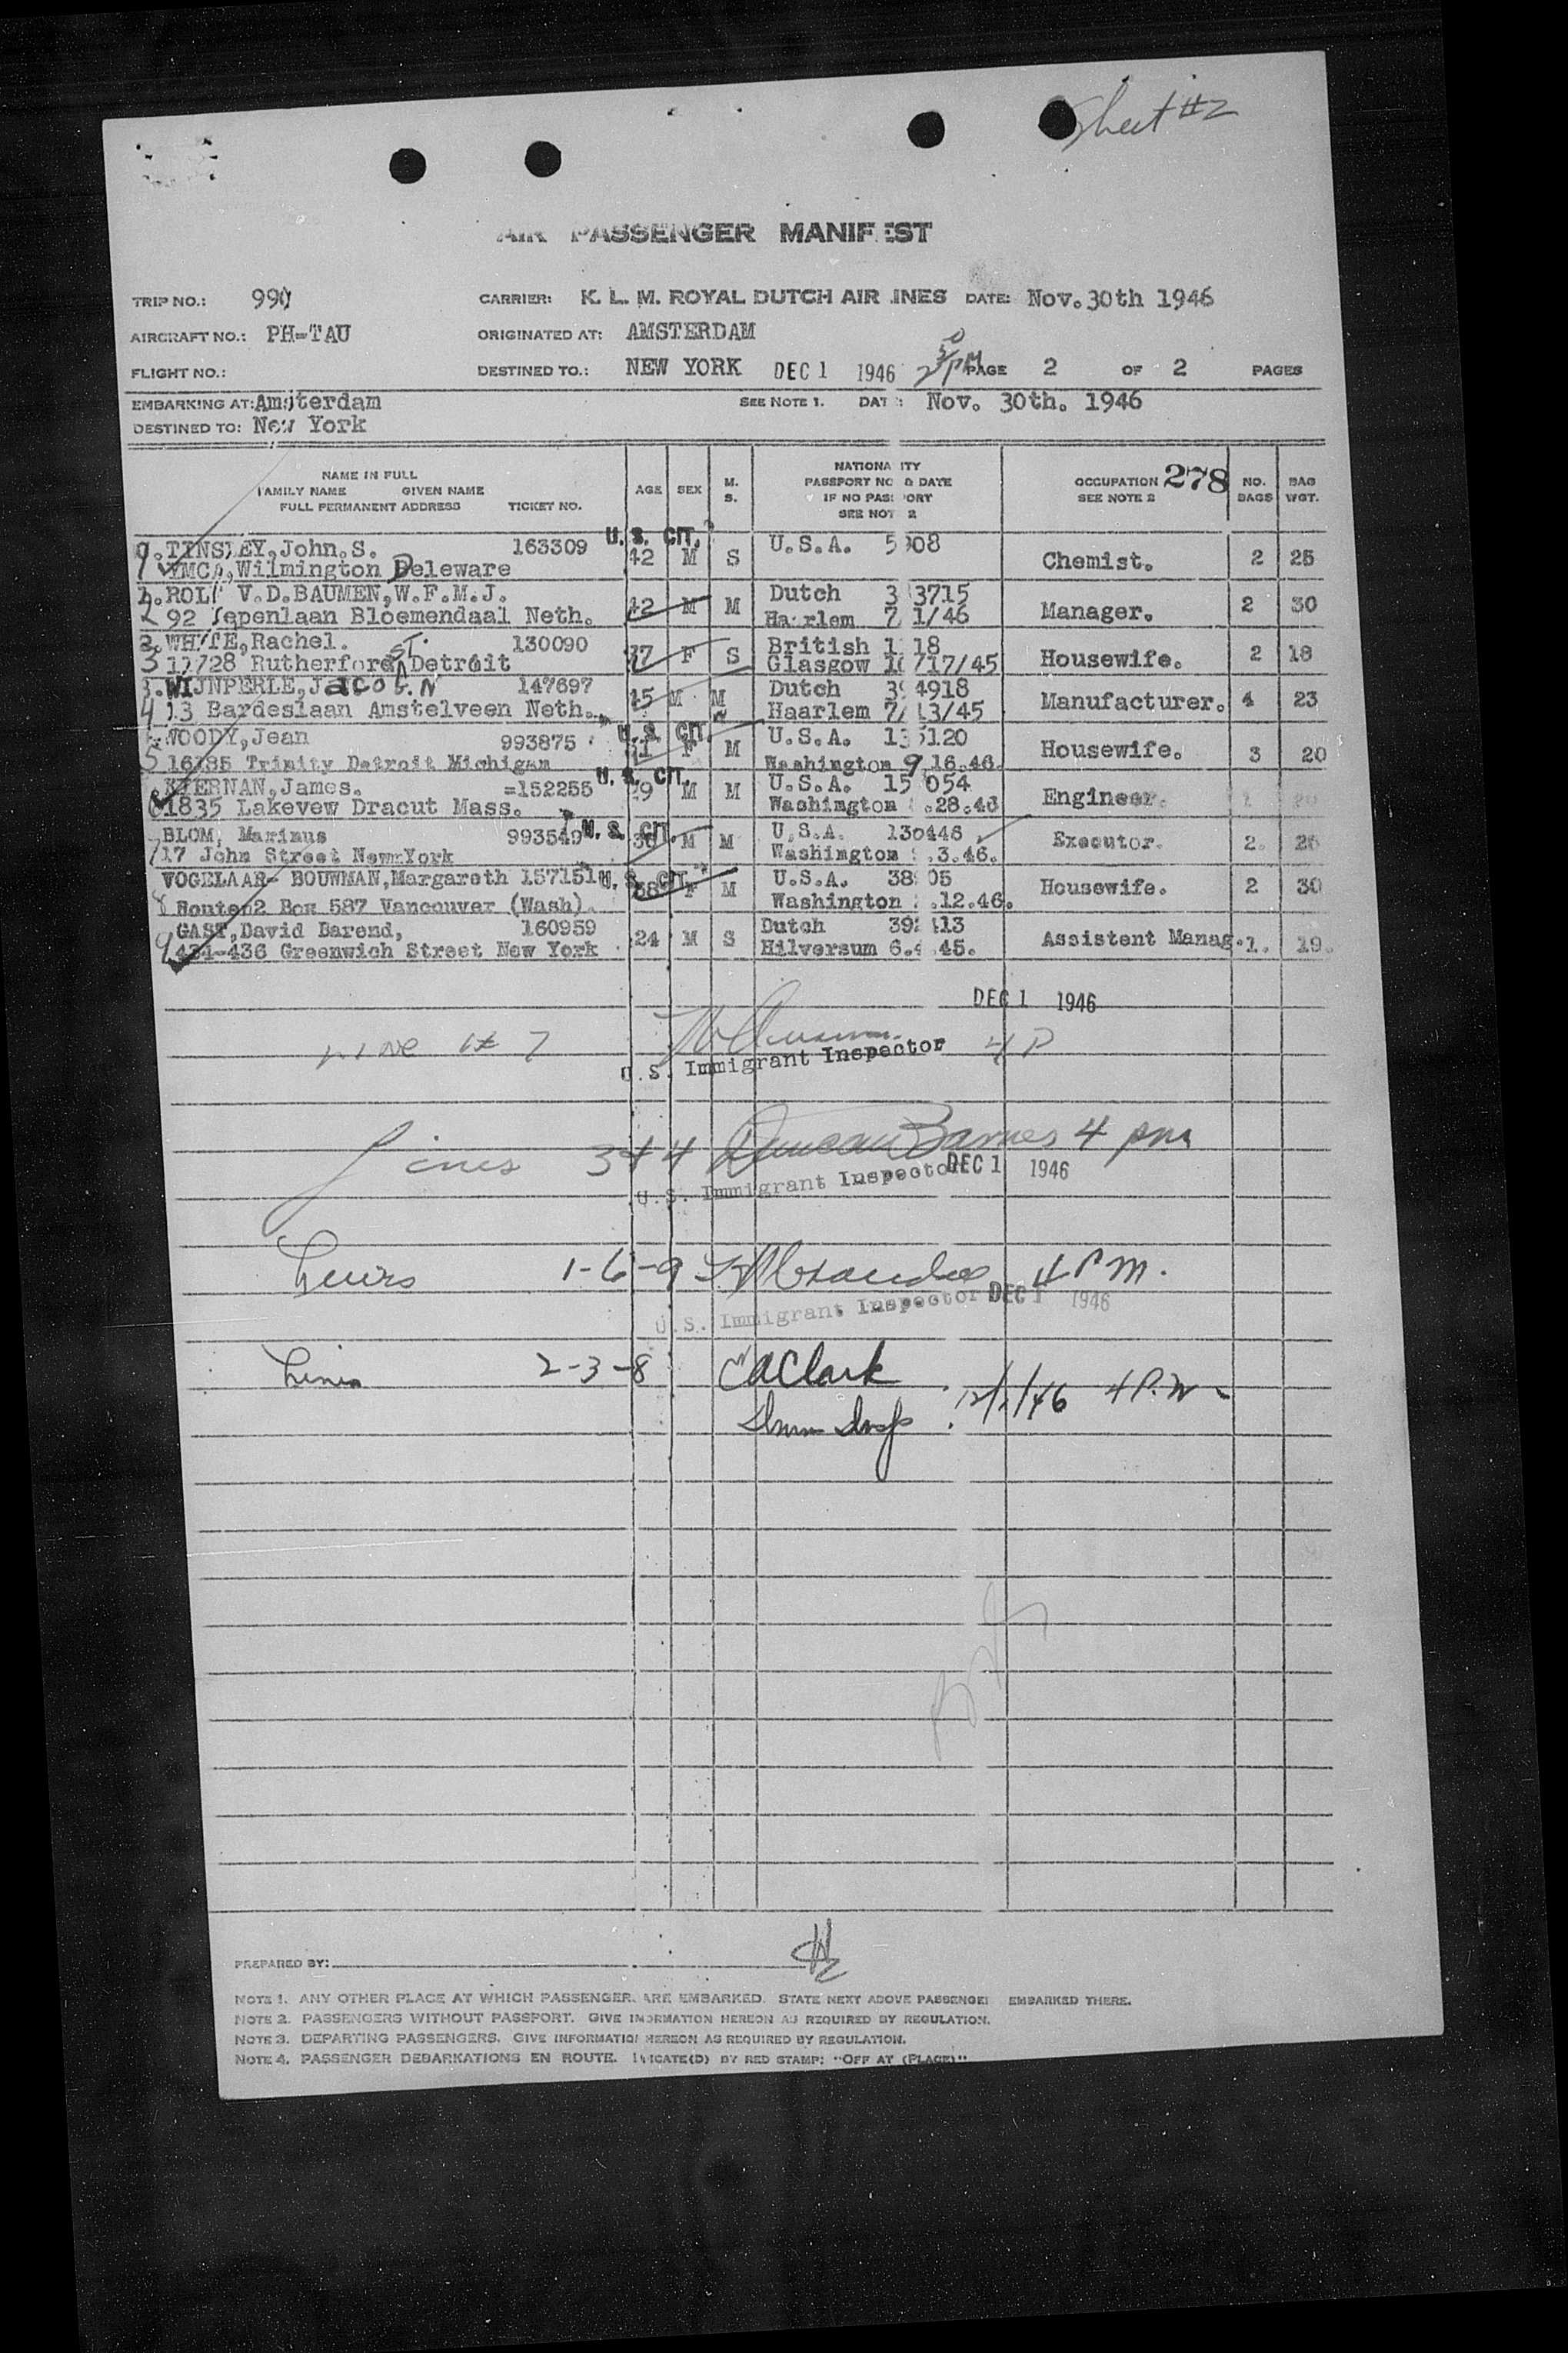 Sheet #2
AIR PASSENGER MANIFEST
TRIP NO.: 990 CARRIER: K. L. M. ROYAL DUTCH AIR INES DATE: Nov. 30th 1946
AIRCRAFT NO.: PH-TAU ORIGINATED AT: AMSTERDAM
FLIGHT NO.: DESTINED TO.: NEW YORK DEC 1 1946 PM PAGE 2 OF 2 PAGES
EMBARKING AT: Amsterdam SEE NOTE 1. DAT : Nov. 30th. 1946
DESTINED TO: New York
NAME IN FULL
FAMILY NAME GIVEN NAME
FULL PERMANENT ADDRESS TICKET NO.
AGE SEX M. S.
NATIONA ITY
PASSPORT NO & DATE
IF NO PAS ORT
SEE NOT 2
OCCUPATION 278
SEE NOTE 2
NO. BAGS BAG WGT.
TINSLEY, John. S. 163309 U. S. CIT. 42 M S U.S.A. Chemist. 2 25
YMCA, Wilmington Deleware
V.D.BAUMEN, W.F.M.J. M M Dutch Manager. 2 30
2 92 Iepenlaan Bloemendaal Neth. Haarlem
WHYTE, Rachel. 130090 F S British Housewife. 2 18
3 Rutherford ST. Detroit Glasgow
WIJNPERLE, Jacob. N 147697 M M Dutch Manufacturer. 4 23
4 Bardeslaan Amstelveen Neth. Haarlem
WOODY, Jean 993875 U. S. CIT. F M U.S.A. Housewife. 3 20
5 Trinity Detroit Michigan Washington 9.16.46.
KIERNAN, James. =152255 U. S. CIT. M M U.S.A. Engineer.
6 1835 Lakevew Dracut Mass. Washington .28.46
BLOM, Marinus 993549 U. S. CIT. M M U.S.A. 130446 Executor. 2.
7 17 John Street New York Washington .3.46.
VOGELAAR- BOUWMAN, Margareth 157151 U. S. CIT. F M U.S.A. Housewife. 2 30
8 Route 2 Box 587 Vancouver (Wash). Washington .12.46.
GAST, David Barend, 160959 24 M S Dutch Assistent Manag. 1. 19.
9 434-436 Greenwich Street New York Hilversum
DEC 1 1946
Line # 7 4 P
U.S. Immigrant Inspector
Lines 3 + 4 Duncan Barnes 4 pm
U.S. Immigrant Inspector DEC 1 1946
Lines 1-6-9 4 P.M.
U.S. Immigrant Inspector DEC 1 1946
Lines 2-3-8 Clark
Imm Insp 12/1/46 4 P.M
PREPARED BY:
NOTE 1. ANY OTHER PLACE AT WHICH PASSENGER ARE EMBARKED. STATE NEXT ABOVE PASSENGE EMBARKED THERE.
NOTE 2. PASSENGERS WITHOUT PASSPORT. GIVE IN ORMATION HEREON AS REQUIRED BY REGULATION.
NOTE 3. DEPARTING PASSENGERS. GIVE INFORMATION HEREON AS REQUIRED BY REGULATION.
NOTE 4. PASSENGER DEBARKATIONS EN ROUTE. INDICATE(D) BY RED STAMP: "OFF AT (PLACE)"